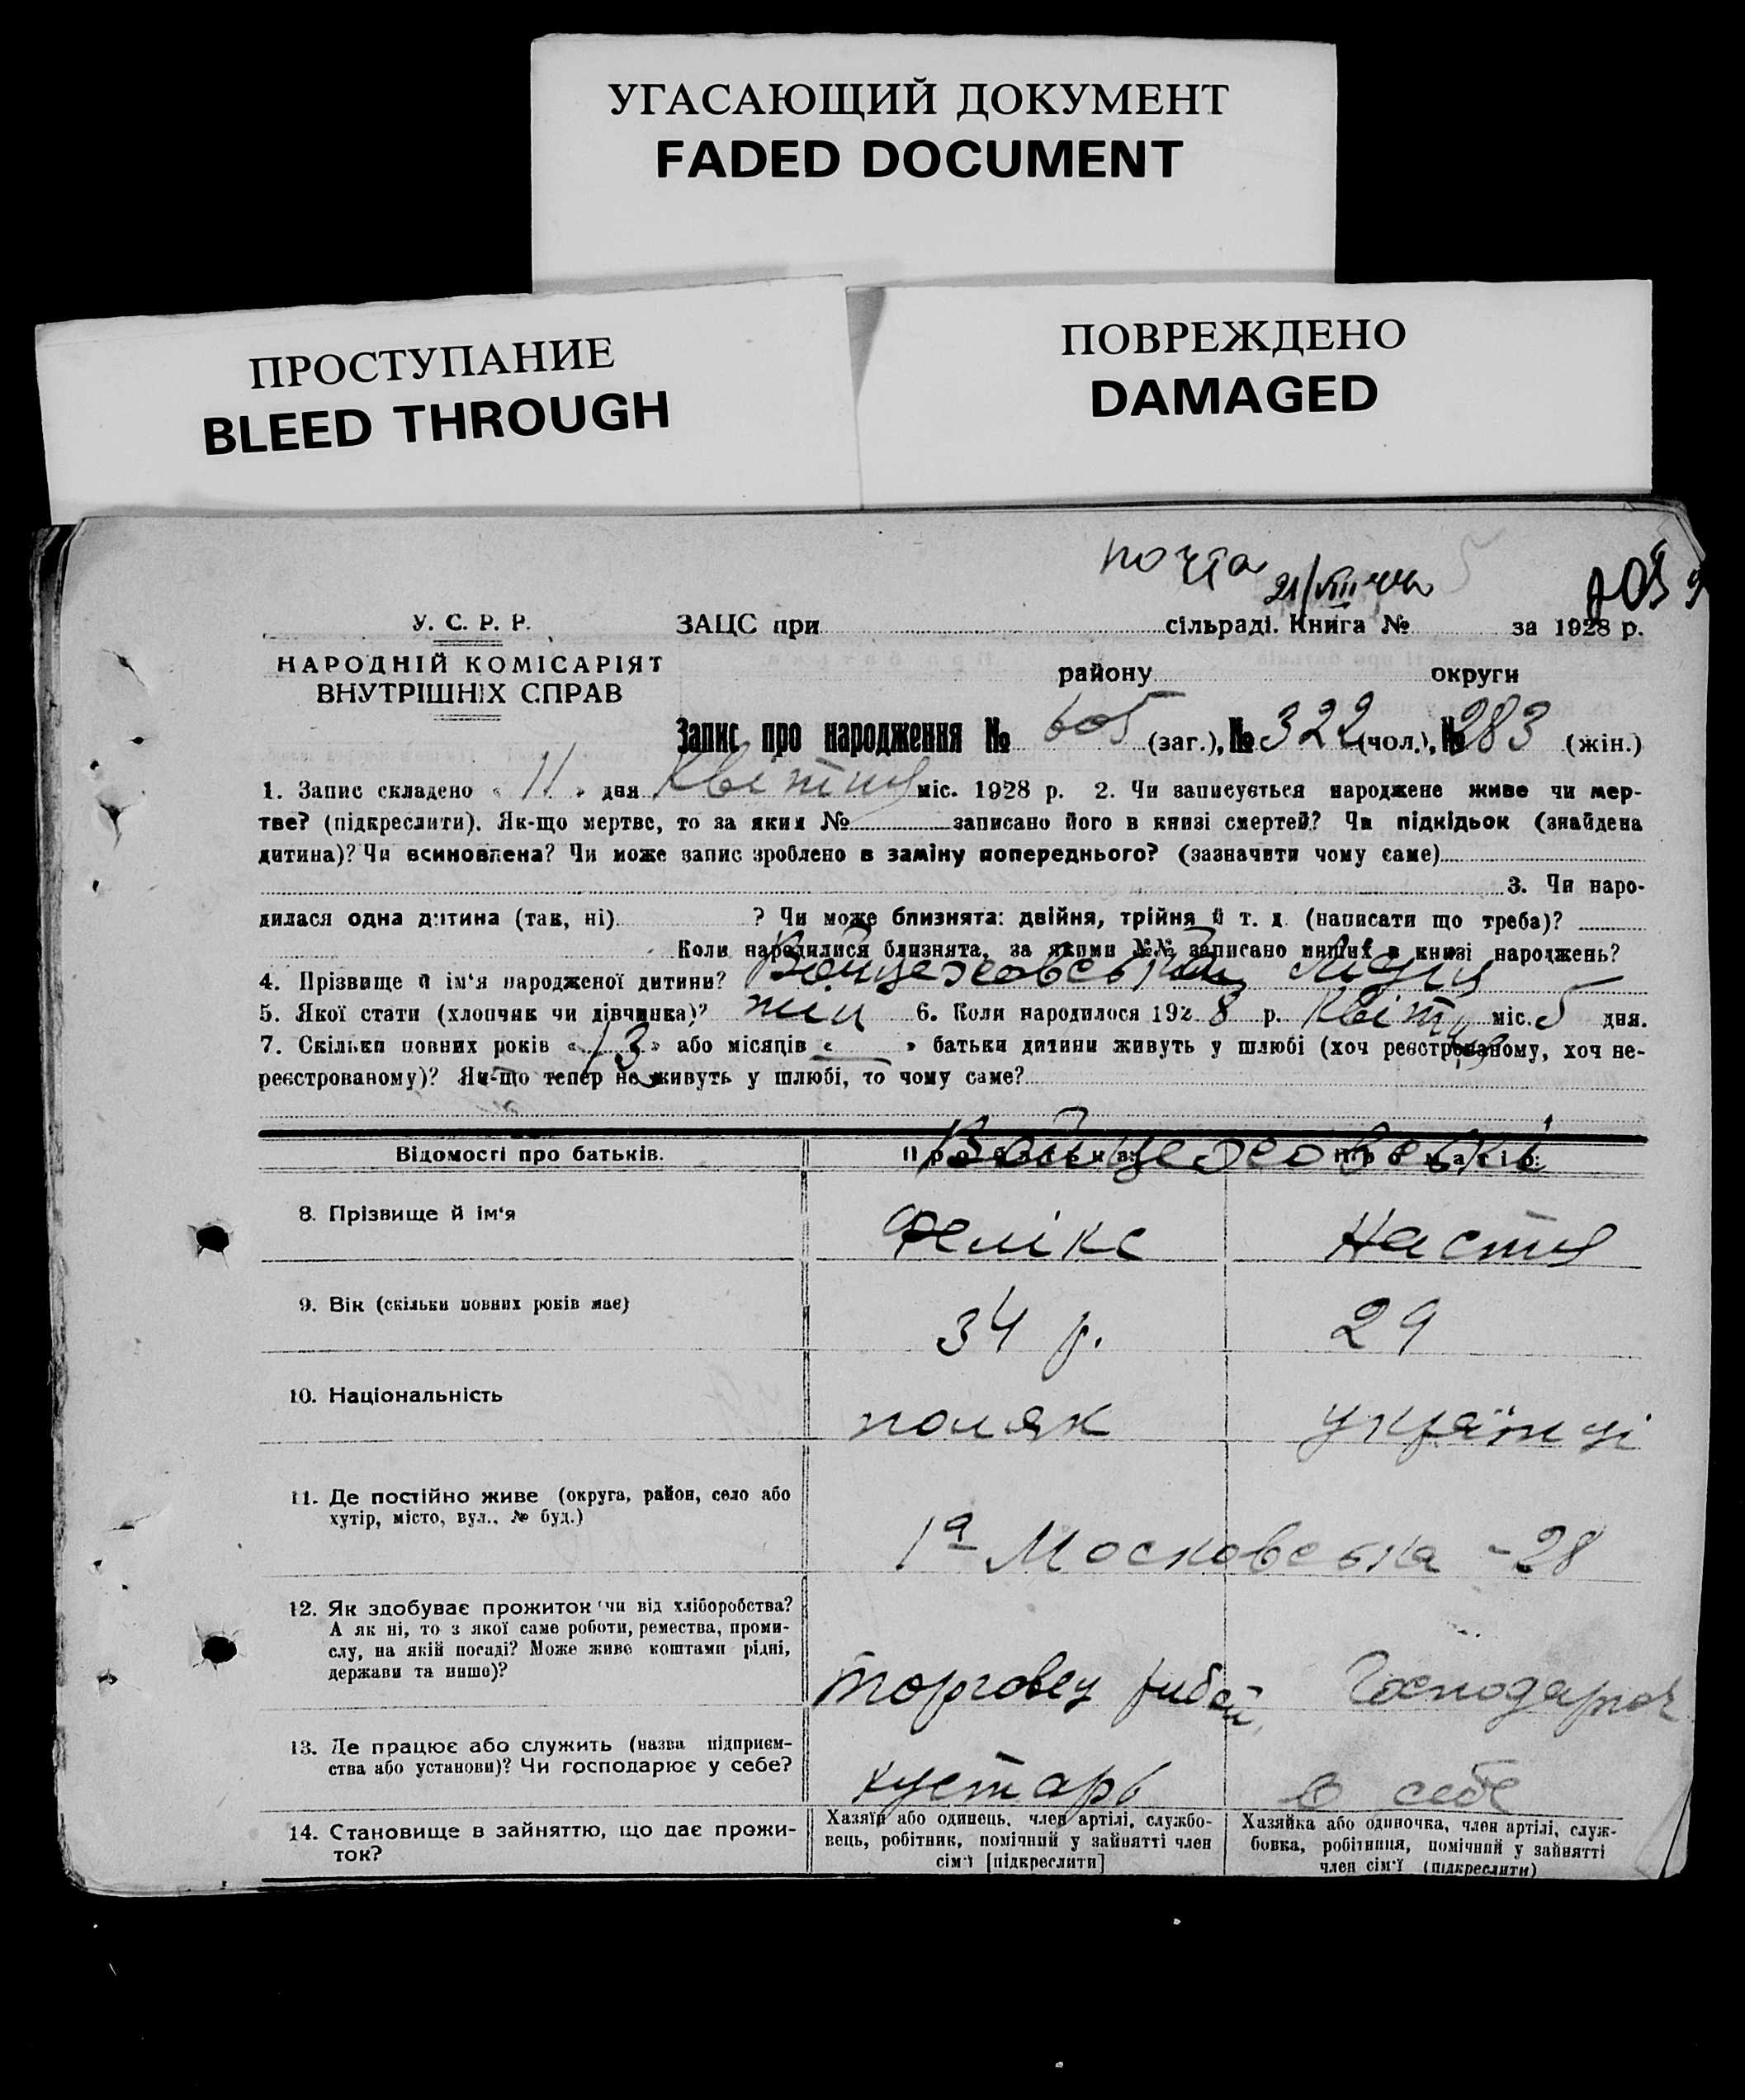 УГАСАЮЩИЙ ДОКУМЕНТ
FADED DOCUMENT
ПРОСТУПАНИЕ
BLEED THROUGH
ПОВРЕЖДЕНО
DAMAGED
почта
21/VIII 44
У. С. Р. Р.
НАРОДНІЙ КОМІСАРІЯТ
ВНУТРІШНІХ СПРАВ
ЗАЦС при сільраді. Книга № за 1928 р.
району округи
Запис про народження № 605 (заг.), № 322 (чол.), № 283 (жін.)
1. Запис складено « 11 » дня Квітня міс. 1928 р. 2. Чи записується народжене живе чи мер-
тве? (підкреслити). Як-що мертве, то за яким № записано його в книзі смертей? Чи підкідьок (знайдена
дитина)? Чи всиновлена? Чи може запис зроблено в заміну попереднього? (зазначити чому саме)
3. Чи наро-
дилася одна дитина (так, ні) ? Чи може близнята: двійня, трійня й т. д. (написати що треба)?
Коли народилися близнята, за якими №№ записано инших в книзі народжень?
4. Прізвище й ім'я народженої дитини? Войцеховська Лідия
5. Якої стати (хлопчик чи дівчинка)? жін 6. Коли народилося 1928 р. Квітня міс. 5 дня.
7. Скільки повних років « 13 » або місяців « » батьки дитини живуть у шлюбі (хоч реєстрованому, хоч не-
реєстрованому)? Як-що тепер не живуть у шлюбі, то чому саме?
Войцеховські
Відомості про батьків. Про батька: Про матір:
8. Прізвище й ім'я Фелікс Настя
9. Вік (скільки повних років має) 34 р. 29
10. Національність поляк українці
11. Де постійно живе (округа, район, село або
хутір, місто, вул., № буд.)
1а Московська - 28
12. Як здобуває прожиток чи від хліборобства?
А як ні, то з якої саме роботи, ремества, проми-
слу, на якій посаді? Може живе коштами рідні,
держави та инше)?
торговец рибой Господарка
13. Де працює або служить (назва підприєм-
ства або установи)? Чи господарює у себе?
кустарь в себе
14. Становище в зайняттю, що дає прожи-
ток?
Хазяїн або одинець, член артілі, службо-
вець, робітник, помічний у зайнятті член
сім'ї [підкреслити]
Хазяйка або одиночка, член артілі, служ-
бовка, робітниця, помічний у зайнятті
член сім'ї (підкреслити)